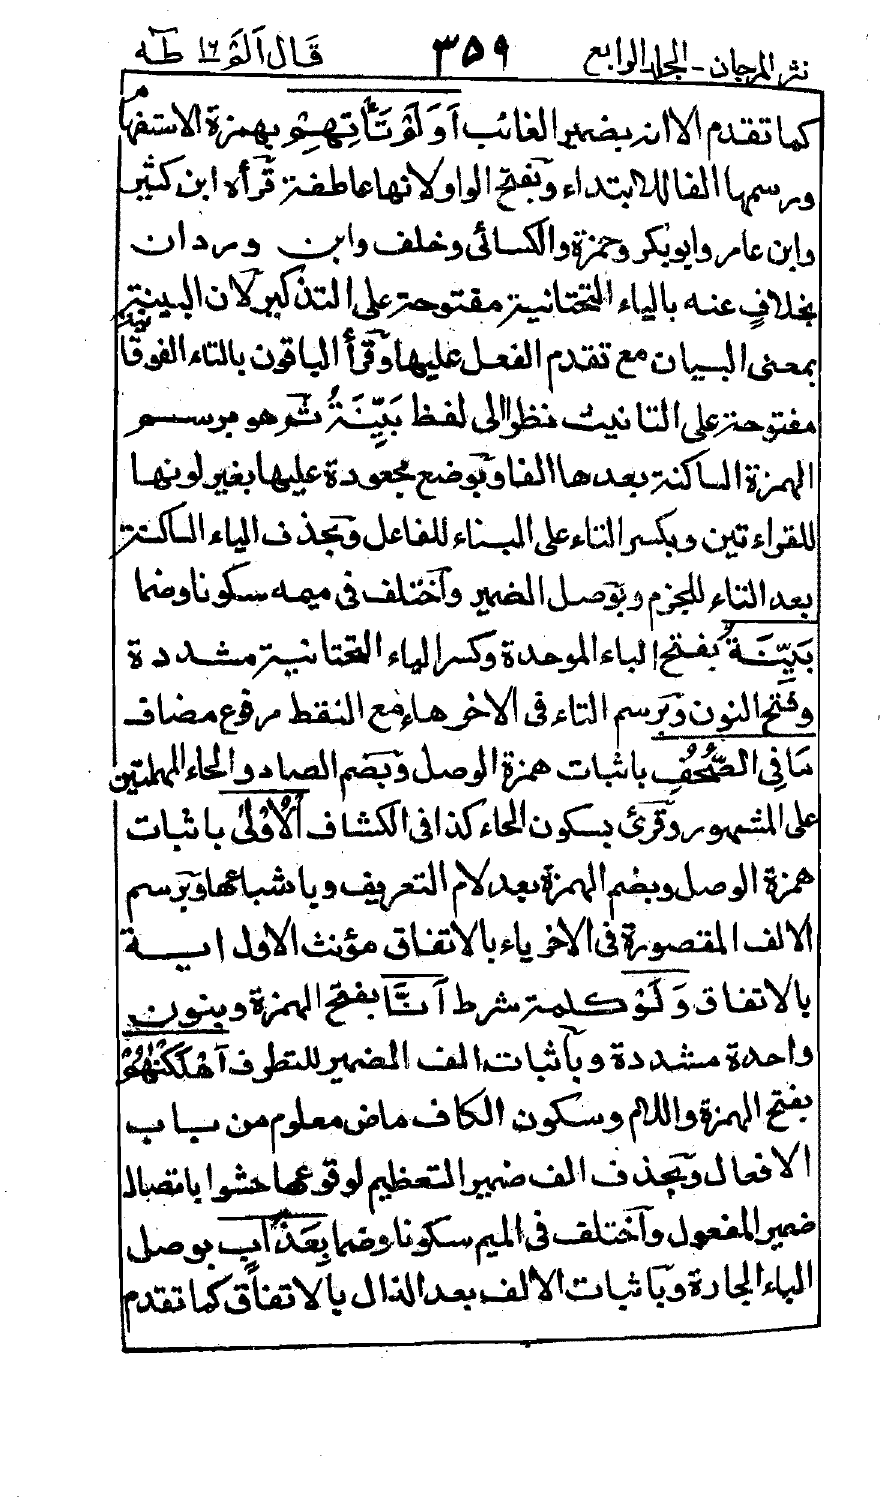 نثر المرجان - الجلد الرابع ٣٥٩ قال الم ١٦ طه
كما تقدم الا انه بضمير الغائب اَوَلَمْ تَأْتِهِمْ بهمزة الاستفهام
ورسمها الفا للابتداء وبفتح الواو لانها عاطفة قرأه ابن كثير
وابن عامر وابوبكر وحمزة والكسائى وخلف وابن وردان
بخلافٍ عنه بالياء التحتانية مفتوحة على التذكير لان البينة
بمعنى البيان مع تقدم الفعل عليها وقرأ الباقون بالتاء الفوقانية
مفتوحة على التانيث نظرا الى لفظ بَيِّنَةُ ثم هو برسم
الهمزة الساكنة بعدها الفا وبوضع مجعودة عليها بغير لونها
للقراءتين وبكسر التاء على البناء للفاعل وبحذف الياء الساكنة
بعد التاء للجزم وبوصل الضمير واختلف فى ميمه سكونا وضما
بَيِّنَةُ بفتح الباء الموحدة وكسر الياء التحتانية مشددة
وفتح النون وبرسم التاء فى الاخر هاء مع النقط مرفوع مضاف
مَا فِى الصُّحُفِ باثبات همزة الوصل وبضم الصاد والحاء المهملتين
على المشهور وقرئ بسكون الحاء كذا فى الكشاف الْاُوْلٰى باثبات
همزة الوصل وبضم الهمزة بعد لام التعريف وباشباعها وبرسم
الالف المقصورة فى الاخر ياء بالاتفاق مؤنث الاول اية
بالاتفاق وَلَوْ كلمة شرط اَنَّا بفتح الهمزة وبنون
واحدة مشددة وباثبات الف الضمير للتطرف اَهْلَكْنٰهُمْ
بفتح الهمزة واللام وسكون الكاف ماض معلوم من باب
الافعال وبحذف الف ضمير التعظيم لوقوعها حشوا باتصال
ضمير المفعول واختلف فى الميم سكونا وضما بِعَذَابٍ بوصل
الباء الجارة وباثبات الالف بعد الذال بالاتفاق كما تقدم